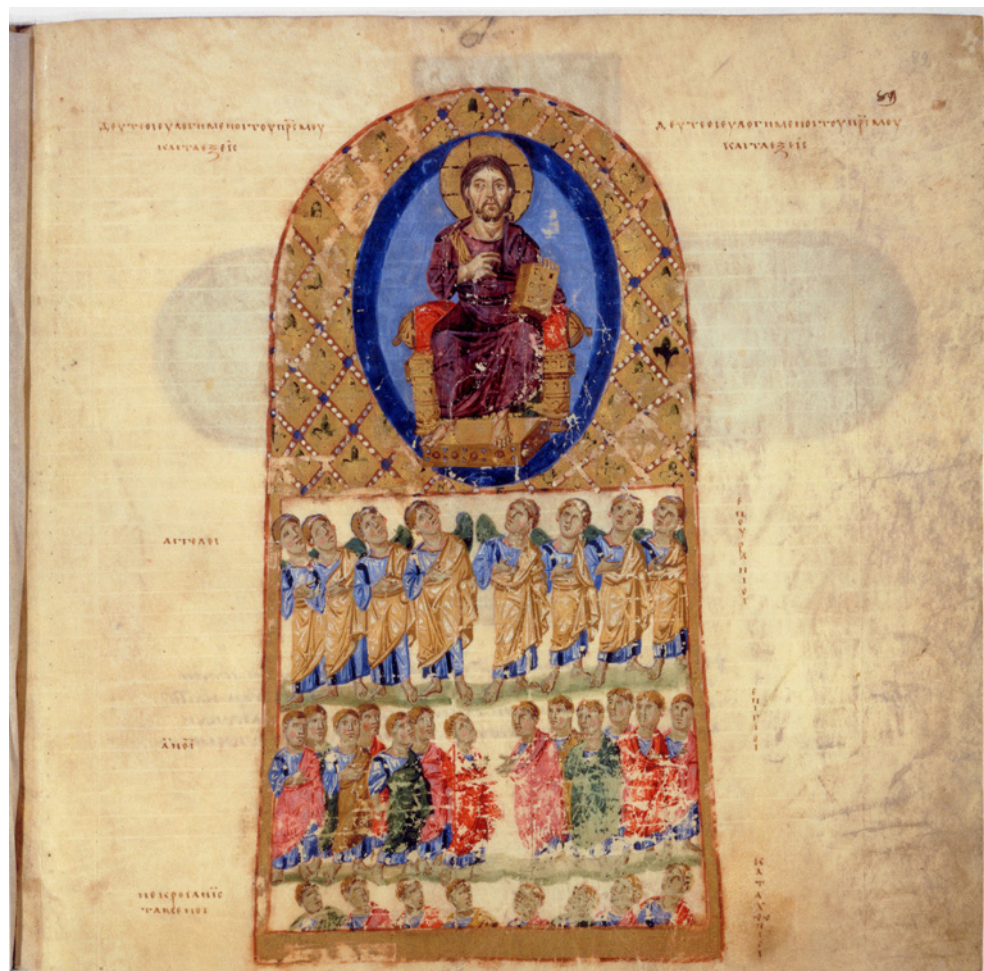 ΔΕΥΤΕΟΙΕΥΛΟΓΗΜΕΝΟΙΤΟΥΠΡ̅Σ̅ΜΟΥ
ΚΑΙΤΑΕΞΕΙϹ
ΔΕΥΤΕΟΙΕΥΛΟΓΗΜΕΝΟΙΤΟΥΠΡ̅Σ̅ΜΟΥ
ΚΑΙΤΑΕΞΕΙϹ
ΑΓΓΕΛΟΙ
ΕΠΟΥΡΑΝΙΟΙ
ΑΝΟΙ
ΕΠΙΓΙΟΙ
ΝΕΚΡΟΙΑΝΙϹ
ΤΑΜΕΝΟΙ
ΚΑΤΑΧΘΟΝΙΟΙ